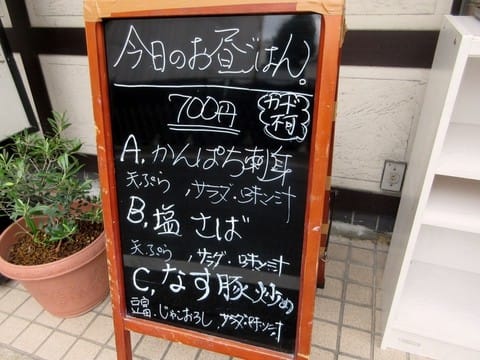 今日のお昼ごはん。
700円
カード
不可
A.かんぱち刺身
天ぷら、サラダ・味ソ汁
B.塩さば
天ぷら、サラダ・味ソ汁
C.なす豚炒め
豆富・じゃこおろし、サラダ・味ソ汁